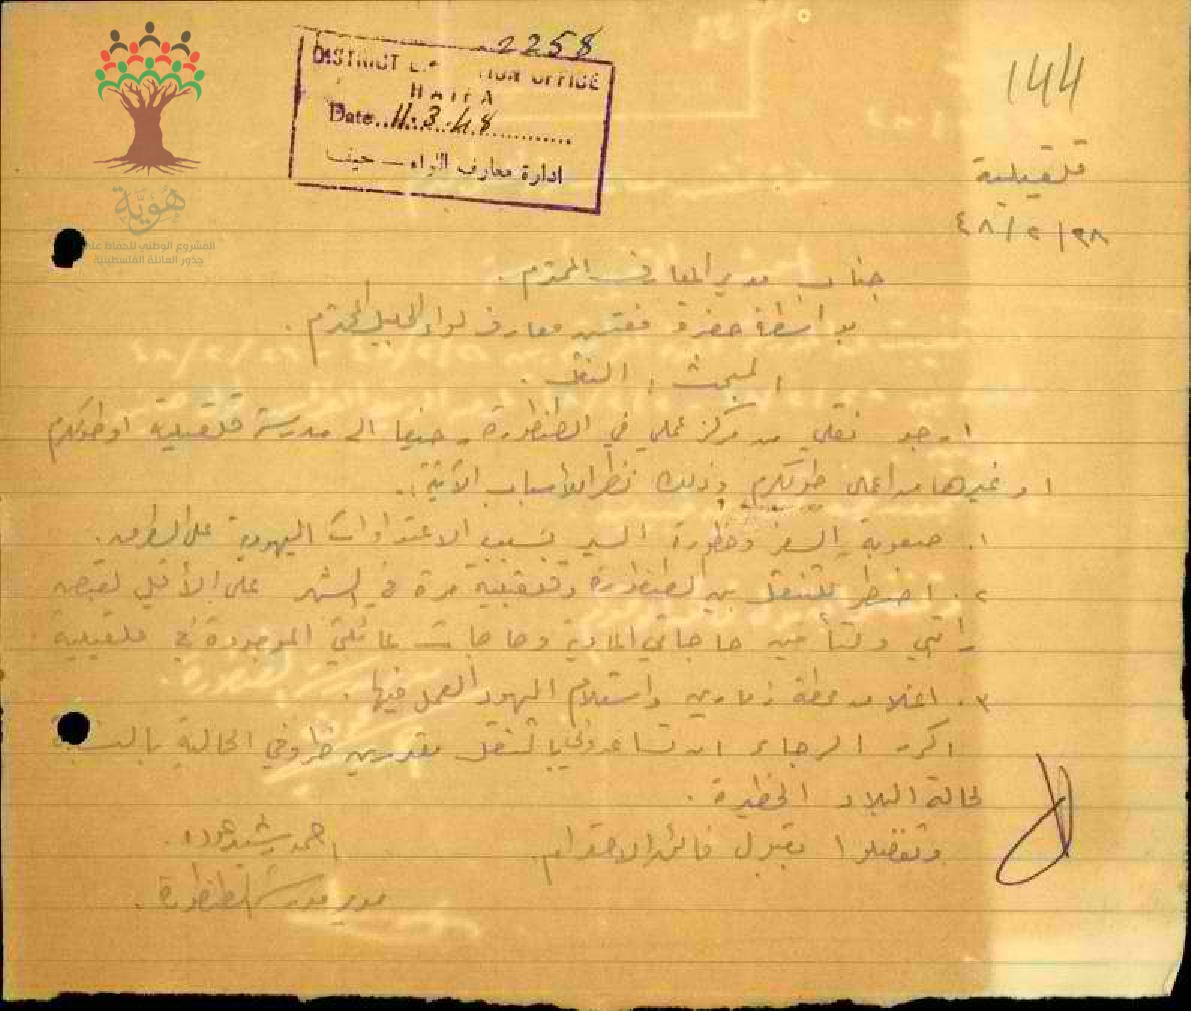 2258
DISTRICT OFFICE
HAIFA
Date 11.3.48
ادارة معارف اللواء — حيفا
هُويَّة
المشروع الوطني للحفاظ على
جذور العائلة الفلسطينية
144
قلقيلية
٤٨/٢/٢٨
جناب مدير المعارف المحترم.
بواسطة حضرة مفتش معارف لواء الجليل المحترم.
المبحث: النقل.
ارجو نقلي من مركز عملي في الطنطورة، حيفا الى مدرسة قلقيلية او طولكرم
او غيرها من اعمال طولكرم وذلك نظرا للاسباب الآتية:.
١. صعوبة السفر وخطورة السير بسبب الاعتداءات اليهودية على الطرق.
٢. اضطر للتنقل بين الطنطورة وقلقيلية مرة في الشهر على الأقل لقبض
راتبي ولتأمين حاجاتي المادية وحاجات عائلتي الموجودة في قلقيلية
٣. اغلاق محطة زمارين واستلام اليهود العمل فيها.
اكرر الرجاء ان تساعدوني بالنقل مقدرين ظروفي الحالية بالنسبة
لحالة البلاد الخطيرة.
وتفضلوا بقبول فائق الاحترام.
احمد رشيد عوده.
مدير مدرسة الطنطورة.